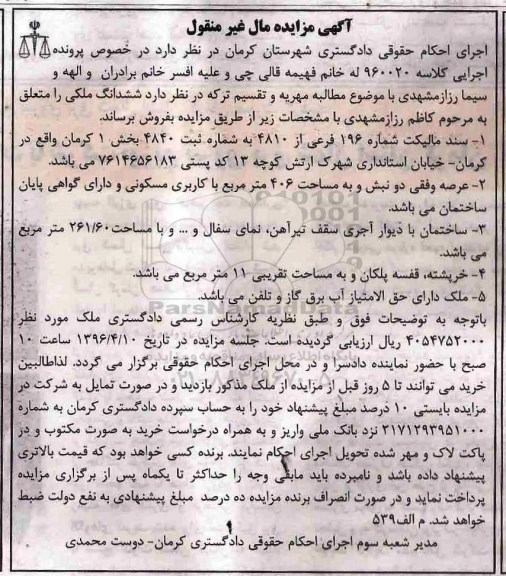 آگهی مزایده مال غیر منقول
اجرای احکام حقوقی دادگستری شهرستان کرمان در نظر دارد در خصوص پرونده
اجرایی کلاسه ۹۶۰۰۲۰ له خانم فهیمه قالی چی و علیه افسر خانم برادران و الهه و
سیما رزازمشهدی با موضوع مطالبه مهریه و تقسیم ترکه در نظر دارد ششدانگ ملکی را متعلق
به مرحوم کاظم رزازمشهدی با مشخصات زیر از طریق مزایده بفروش برساند.
۱- سند مالیکت شماره ۱۹۶ فرعی از ۴۸۱۰ به شماره ثبت ۴۸۴۰ بخش ۱ کرمان واقع در
کرمان- خیابان استانداری شهرک ارتش کوچه ۱۳ کد پستی ۷۶۱۴۶۵۶۱۸۳ می باشد.
۲- عرصه وفقی دو نبش و به مساحت ۴۰۶ متر مربع با کاربری مسکونی و دارای گواهی پایان
ساختمان می باشد.
۳- ساختمان با دیوار آجری سقف تیرآهن، نمای سفال و ... و با مساحت۲۶۱/۶۰ متر مربع
می باشد.
۴- خرپشته، قفسه پلکان و به مساحت تقریبی ۱۱ متر مربع می باشد.
۵- ملک دارای حق الامتیاز آب برق گاز و تلفن می باشد.
باتوجه به توضیحات فوق و طبق نظریه کارشناس رسمی دادگستری ملک مورد نظر
۴۰۵۴۷۵۲۰۰۰ ریال ارزیابی گردیده است. جلسه مزایده در تاریخ ۱۳۹۶/۴/۱۰ ساعت ۱۰
صبح با حضور نماینده دادسرا و در محل اجرای احکام حقوقی برگزار می گردد. لذاطالبین
خرید می توانند تا ۵ روز قبل از مزایده از ملک مذکور بازدید و در صورت تمایل به شرکت در
مزایده بایستی ۱۰ درصد مبلغ پیشنهاد خود را به حساب سپرده دادگستری کرمان به شماره
۲۱۷۱۲۹۳۹۵۱۰۰۰ نزد بانک ملی واریز و به همراه درخواست خرید به صورت مکتوب و در
پاکت لاک و مهر شده تحویل اجرای احکام نمایند. برنده کسی خواهد بود که قیمت بالاتری
پیشنهاد داده باشد و نامبرده باید مابقی وجه را حداکثر تا یکماه پس از برگزاری مزایده
پرداخت نماید و در صورت انصراف برنده مزایده ده درصد مبلغ پیشنهادی به نفع دولت ضبط
خواهد شد. م الف۵۳۹
مدیر شعبه سوم اجرای احکام حقوقی دادگستری کرمان- دوست محمدی